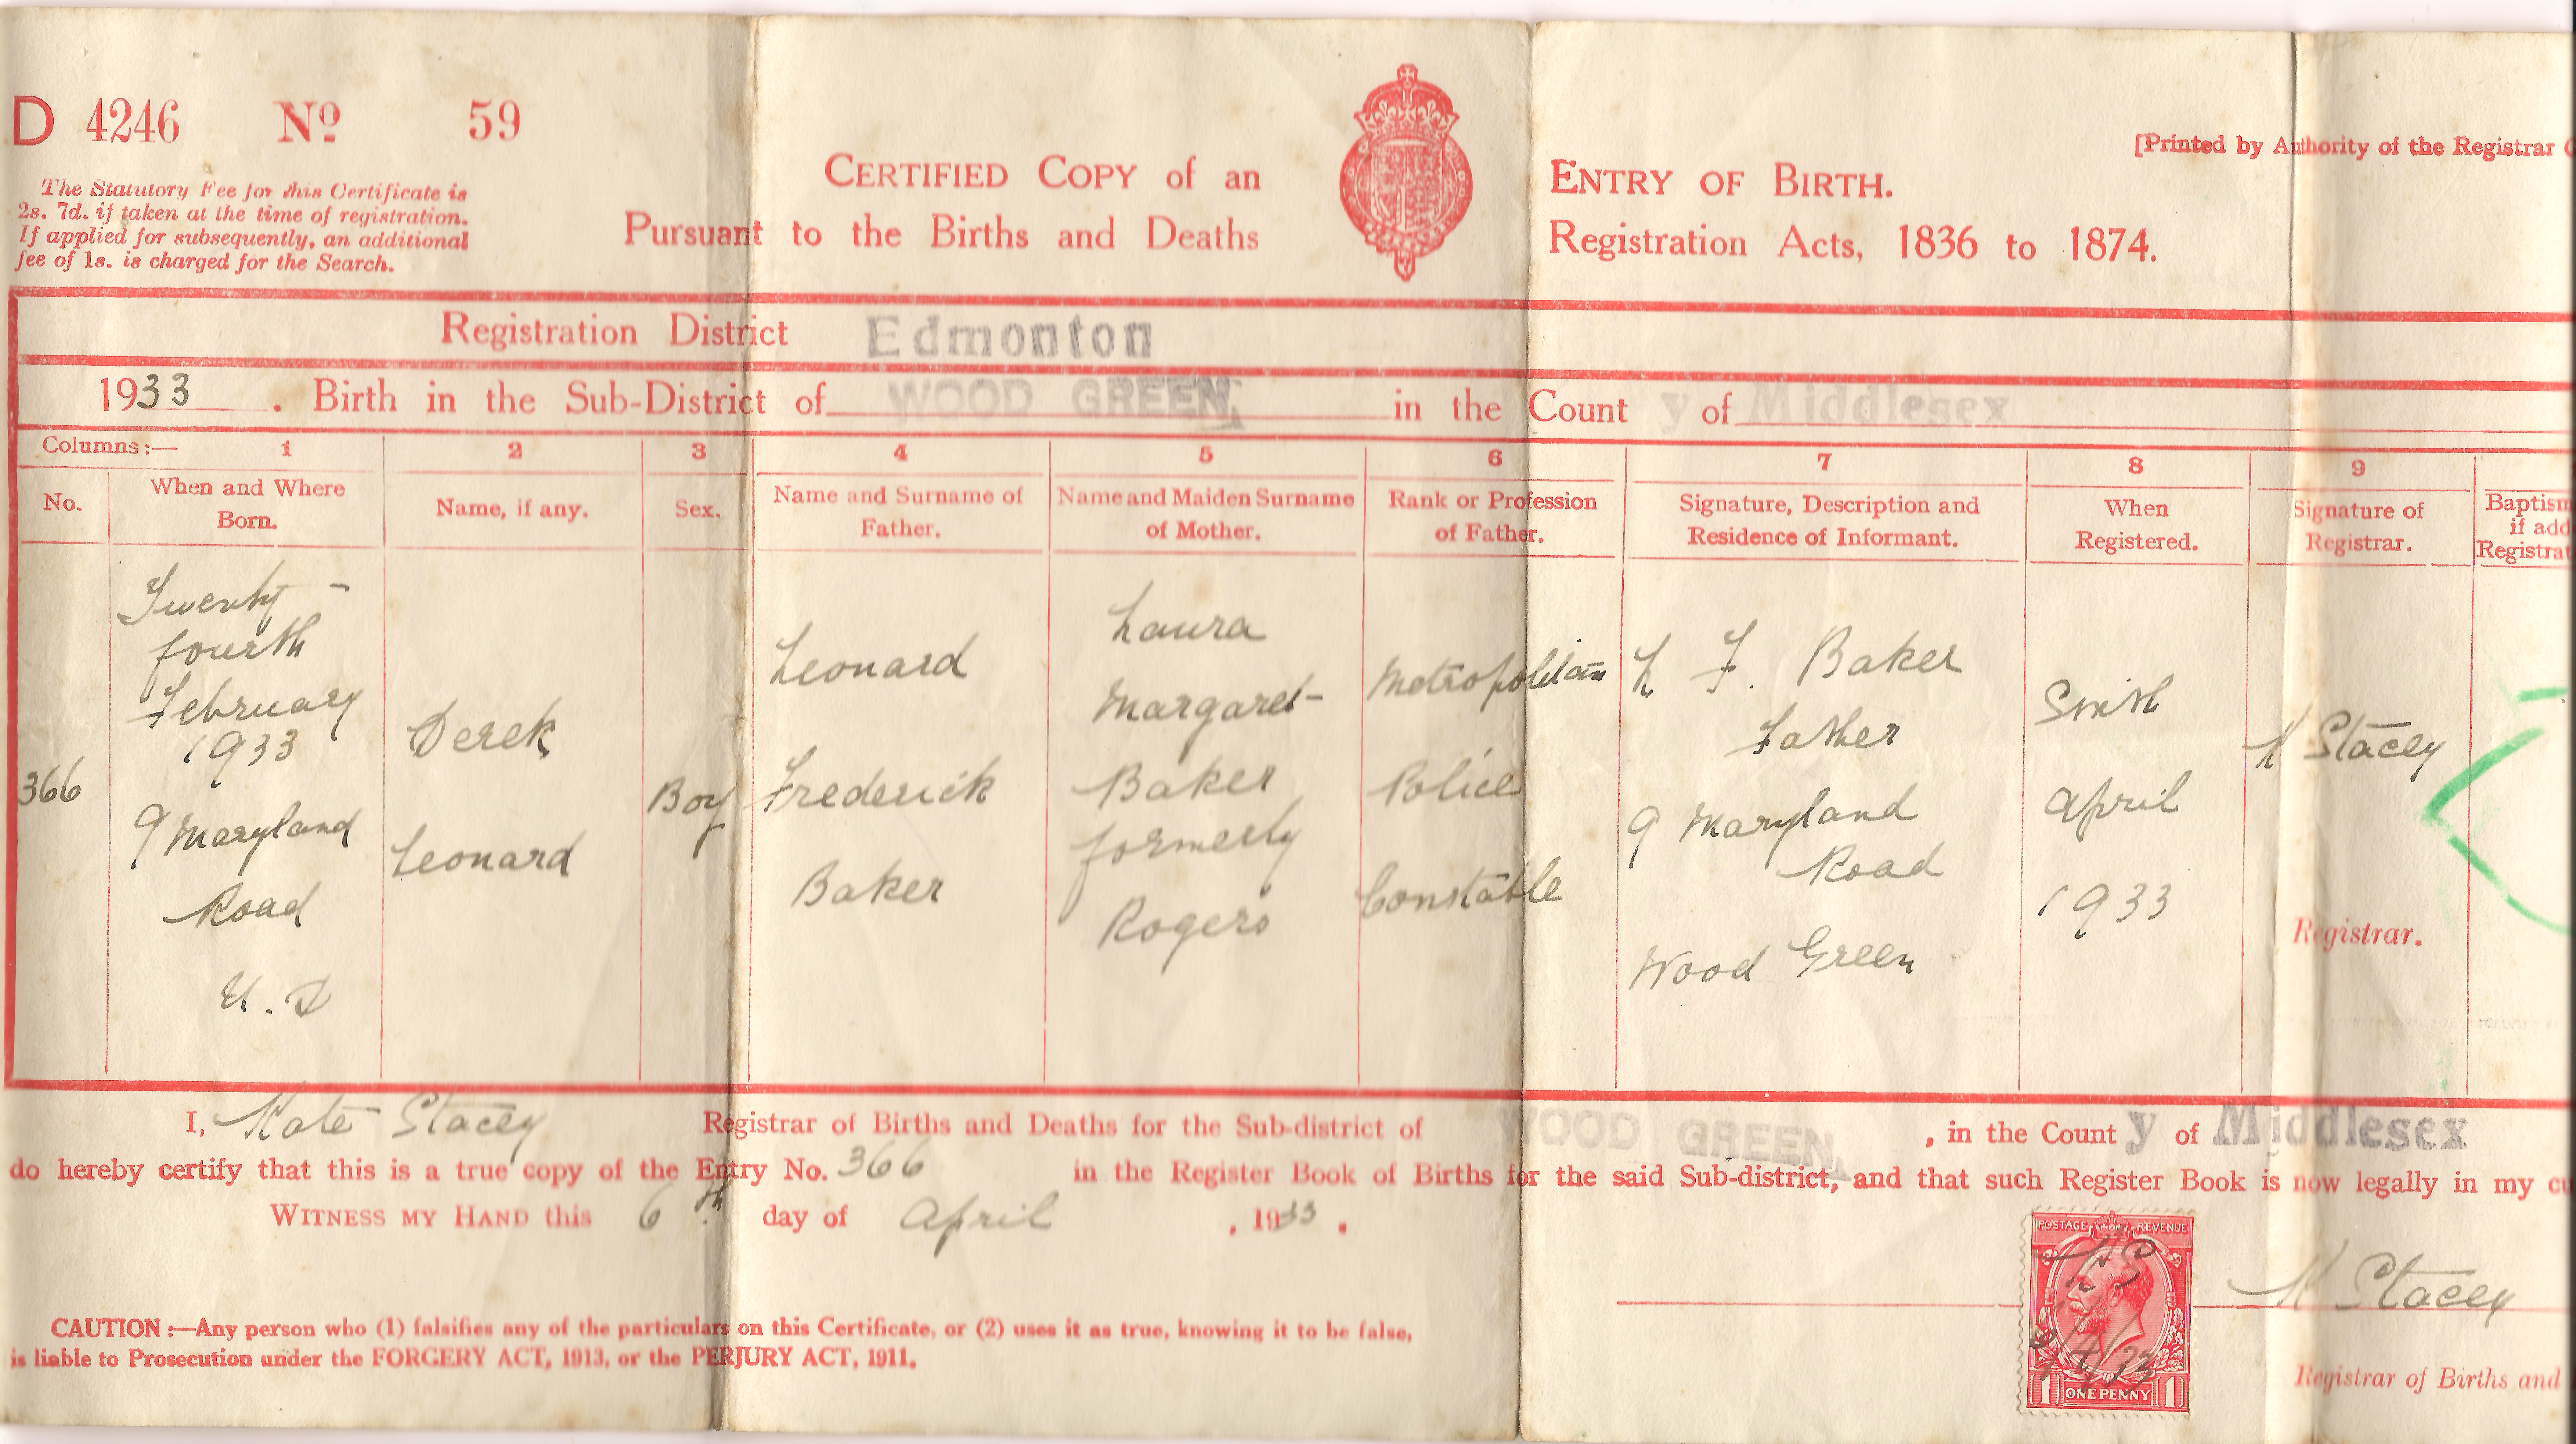 D 4246 No 59
The Statutory Fee for this Certificate is
2s. 7d. if taken at the time of registration.
If applied for subsequently, an additional
fee of 1s. is charged for the Search.
CERTIFIED COPY of an ENTRY OF BIRTH.
Pursuant to the Births and Deaths Registration Acts, 1836 to 1874.
[Printed by Authority of the Registrar
Registration District Edmonton
1933. Birth in the Sub-District of WOOD GREEN, in the County of Middlesex
Columns:— 1 2 3 4 5 6 7 8 9
No.
When and Where
Born.
Name, if any.
Sex.
Name and Surname of
Father.
Name and Maiden Surname
of Mother.
Rank or Profession
of Father.
Signature, Description and
Residence of Informant.
When
Registered.
Signature of
Registrar.
Baptism
if add
Registrat
366
Twenty-
fourth
February
1933
9 Maryland
Road
U.D
Derek
Leonard
Boy
Leonard
Frederick
Baker
Laura
Margaret
Baker
formerly
Rogers
Metropolitan
Police
Constable
L F. Baker
Father
9 Maryland
Road
Wood Green
Sixth
April
1933
K Stacey
Registrar.
I, Kate Stacey Registrar of Births and Deaths for the Sub-district of WOOD GREEN, in the County of Middlesex
do hereby certify that this is a true copy of the Entry No. 366 in the Register Book of Births for the said Sub-district, and that such Register Book is now legally in my
WITNESS MY HAND this 6th day of April, 1933.
POSTAGE REVENUE
KS
1 ONE PENNY 1
K Stacey
Registrar of Births and
CAUTION:—Any person who (1) falsifies any of the particulars on this Certificate, or (2) uses it as true, knowing it to be false,
is liable to Prosecution under the FORGERY ACT, 1913, or the PERJURY ACT, 1911.